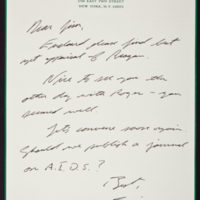 EAST 72ND STREET
NEW YORK, N.Y. 10021
Dear Jim,
Enclosed please find but
not appraisal of Reagan.
Nice to see you the
other day with Roger - you
second will.
Let's converse soon again.
Should we publish a journal
on A.I.D.S.?
Best,